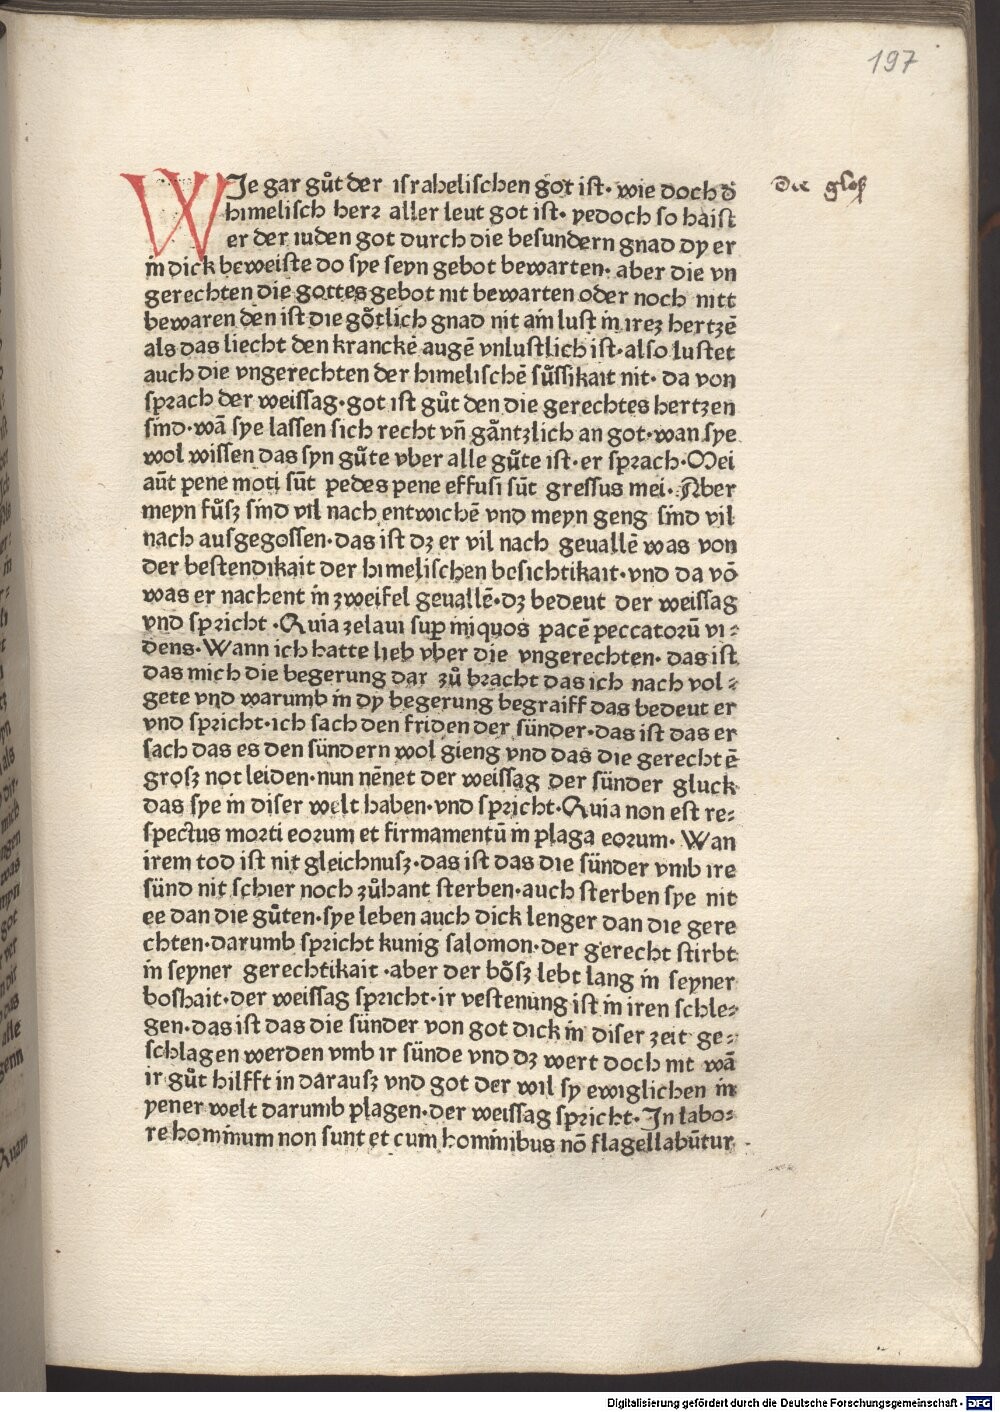 197
die gloß
WJe gar gůt der israhelischen got ist· wie doch đ
himelisch herꝛ aller leut got ist· yedoch so haist
er der iuden got durch die besundern gnad dy er
in dick beweiste do sye seyn gebot bewarten· aber die vn
gerechten die gottes gebot nit bewarten oder noch nitt
bewaren den ist die goͤtlich gnad nit ain lust in irez hertzē
als das liecht den kranckē augē vnlustlich ist·also lustet
auch die vngerechten der himelischē suͤssikait nit· da von
sprach der weissag·got ist gůt den die gerechtes hertzen
sind·wā sye lassen sich recht vñ gaͤntzlich an got·wan sye
wol wissen das syn guͤte vber alle guͤte ist·er sprach·Mei
aūt pene moti sūt pedes pene effusi sūt gressus mei·Aber
meyn fuͤsz sind vil nach entwichē vnd meyn geng sind vil
nach ausgegossen·das ist dz er vil nach geuallē was von
der bestendikait der himelischen besichtikait·vnd da vō
was er nachent in zweifel geuallē·dz bedeut der weissag
vnd spricht·Quia zelaui sup iniquos pacē peccatorū vi⸗
dens·Wann ich hatte lieb vber die vngerechten· das ist
das mich die begerung dar zů bracht das ich nach vol⸗
gete vnd warumb in dy begerung begraiff das bedeut er
vnd spricht·ich sach den friden der sünder·das ist das er
sach das es den sündern wol gieng vnd das die gerechtē
grosz not leiden·nun nēnet der weissag der sünder gluck
das sye in diser welt haben·vnd spricht·Quia non est re⸗
spectus morti eorum et firmamentū in plaga eorum· Wan
irem tod ist nit gleichnusz·das ist das die sünder vmb ire
sünd nit schier noch zůhant sterben·auch sterben sye nit
ee dan die guͤten·sye leben auch dick lenger dan die gere
chten·darumb spricht kunig salomon·der gerecht stirbt
in seyner gerechtikait·aber der boͤsz lebt lang in seyner
boshait·der weissag spricht·ir vestenung ist in iren schle⸗
gen·das ist das die sünder von got dick in diser zeit ge⸗
schlagen werden vmb ir sünde vnd dz wert doch nit wā
ir gůt hilfft in darausz vnd got der wil sy ewiglichen in
yener welt darumb plagen·der weissag spricht·In labo⸗
re hominum non sunt et cum hominibus nō flagellabūtur
Digitalisierung gefördert durch die Deutsche Forschungsgemeinschaft - DFG